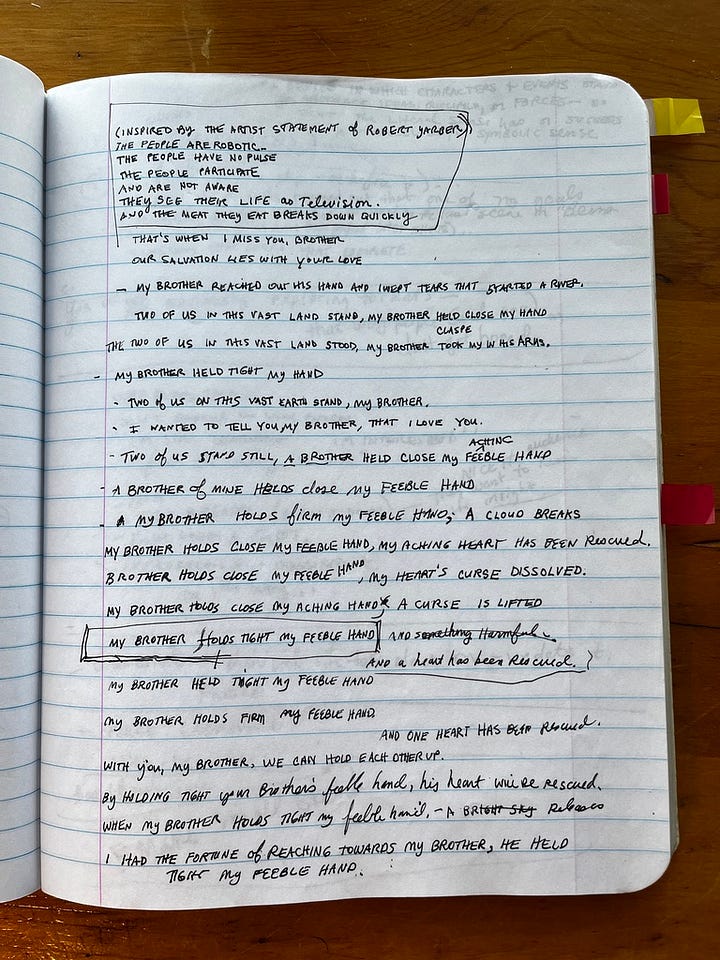 (INSPIRED BY THE ARTIST STATEMENT of ROBERT YARBER)
THE PEOPLE ARE ROBOTIC_
THE PEOPLE HAVE NO PULSE
THE PEOPLE PARTICIPATE
AND ARE NOT AWARE
THEY SEE THEIR LIFE as Television.
AND THE MEAT THEY EAT BREAKS DOWN QUICKLY
THAT'S WHEN I MISS YOU, BROTHER
OUR SALVATION LIES WITH YOUR LOVE
- MY BROTHER REACHED OUT HIS HAND AND WEPT TEARS THAT STARTED A RIVER.
TWO OF US IN THIS VAST LAND STAND, MY BROTHER HELD CLOSE MY HAND
CLASPE
THE TWO OF US IN THIS VAST LAND STOOD, MY BROTHER TOOK MY IN HIS ARMS.
- MY BROTHER HELD TIGHT MY HAND
- TWO OF US ON THIS VAST EARTH STAND, MY BROTHER.
- I WANTED TO TELL YOU, MY BROTHER, THAT I LOVE YOU.
ACHING
- TWO OF US STAND STILL, A BROTHER HELD CLOSE MY FEEBLE HAND
- A BROTHER of MINE HOLDS close my FEEBLE HAND
- MY BROTHER HOLDS firm my FEEBLE HAND; A CLOUD BREAKS
MY BROTHER HOLDS CLOSE MY FEEBLE HAND, MY ACHING HEART HAS BEEN RESCUED.
BROTHER HOLDS CLOSE MY FEEBLE HAND, MY HEART'S CURSE DISSOLVED.
MY BROTHER HOLDS CLOSE MY ACHING HAND, A CURSE IS LIFTED
MY BROTHER HOLDS TIGHT MY FEEBLE HAND AND something Harmful
AND a heart has been Rescued.
MY BROTHER HELD TIGHT MY FEEBLE HAND
MY BROTHER HOLDS FIRM MY FEEBLE HAND
AND ONE HEART HAS BEEN Rescued.
WITH you, MY BROTHER, WE CAN HOLD EACH OTHER UP.
By HOLDING TIGHT your Brother's feeble hand, his heart will be rescued.
WHEN MY BROTHER HOLDS TIGHT my feeble hand. - A BRIGHT SKY Releases
I HAD THE FORTUNE of REACHING TOWARDS MY BROTHER, HE HELD
TIGHT MY FEEBLE HAND.